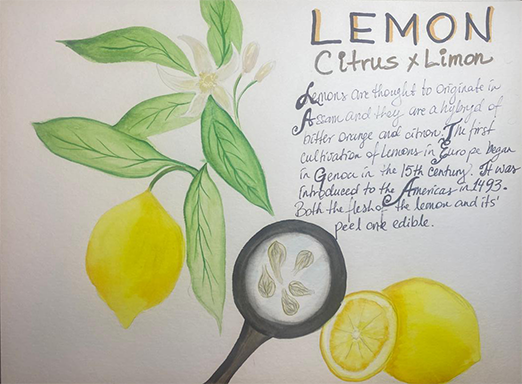 LEMON
Citrus x Limon
Lemons are thought to originate in
Assam and they are a hybryd of
bitter orange and citron. The first
cultivation of lemons in Europe began
in Genoa in the 15th century. It was
introduced to the Americas in 1493.
Both the flesh of the lemon and its'
peel are edible.